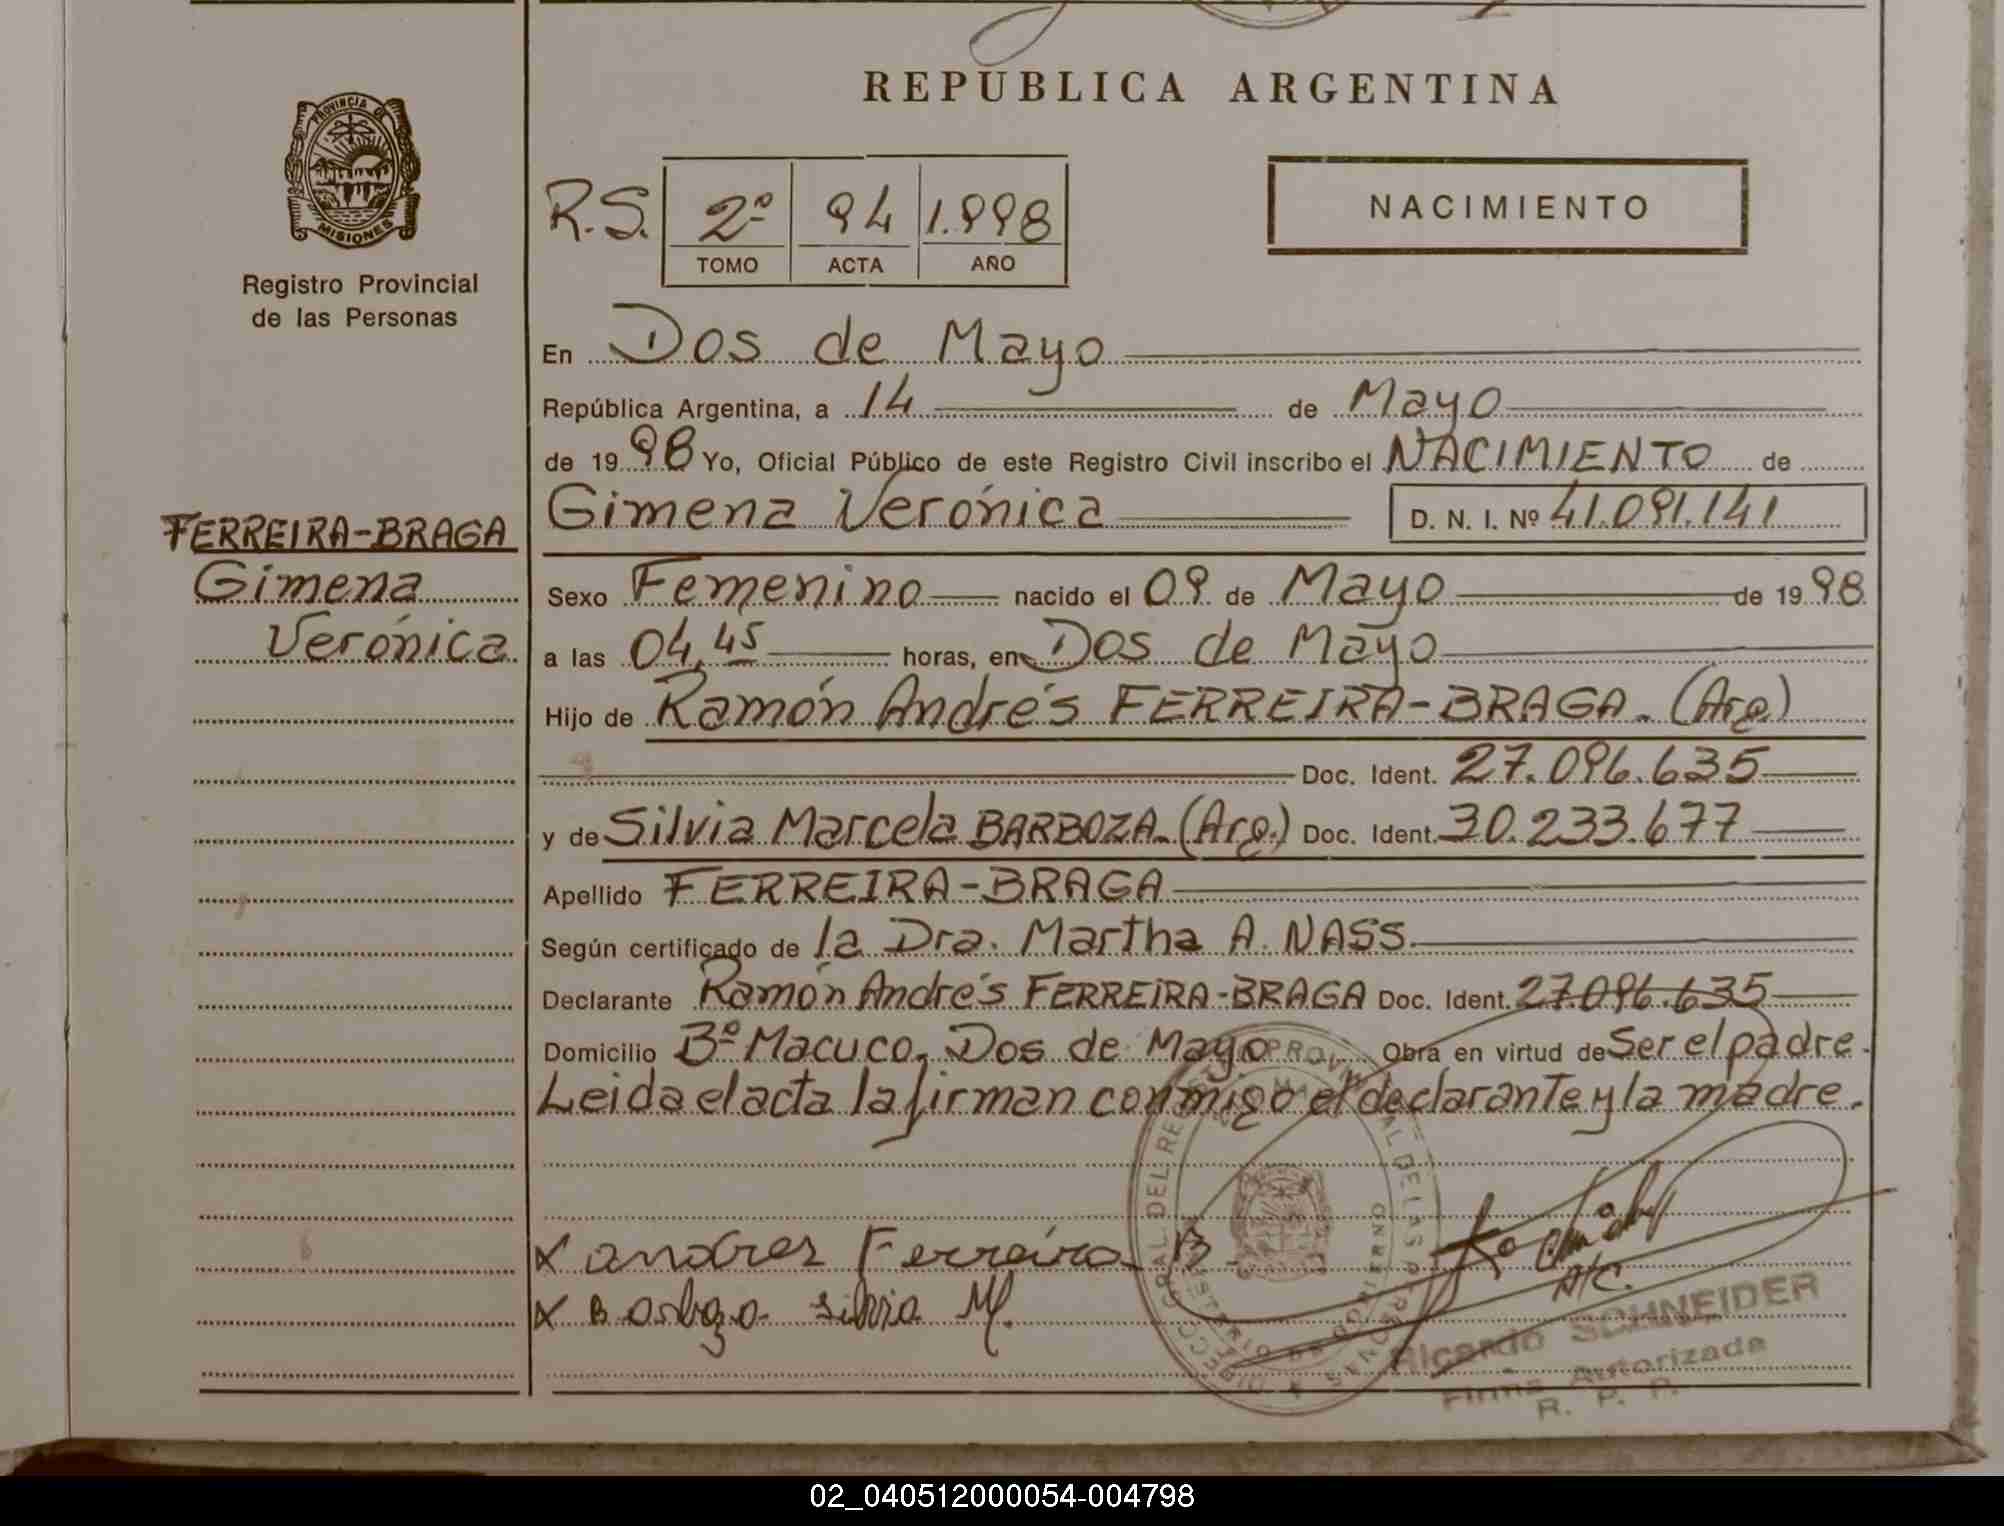 REPUBLICA ARGENTINA
PROVINCIA DE
MISIONES
Registro Provincial
de las Personas
R.S. 2º 94 1.998
TOMO ACTA AÑO
NACIMIENTO
En Dos de Mayo
República Argentina, a 14 de Mayo
de 1998 Yo, Oficial Público de este Registro Civil inscribo el NACIMIENTO de
Gimena Verónica D. N. I. Nº 41.091.141
FERREIRA-BRAGA
Gimena
Verónica
Sexo Femenino nacido el 09 de Mayo de 1998
a las 04,45 horas, en Dos de Mayo
Hijo de Ramón Andrés FERREIRA-BRAGA. (Arg)
Doc. Ident. 27.096.635
y de Silvia Marcela BARBOZA. (Arg.) Doc. Ident. 30.233.677
Apellido FERREIRA-BRAGA
Según certificado de la Dra. Martha A. NASS.
Declarante Ramón Andrés FERREIRA-BRAGA Doc. Ident. 27.096.635
Domicilio Bº Macuco, Dos de Mayo Obra en virtud de Ser el padre.
Leida el acta la firman conmigo el declarante y la madre.
x andres Ferreira B
x Barboza silvia M.
A/C.
Ricardo SCHNEIDER
Firma Autorizada
R. P. P.
02_040512000054-004798